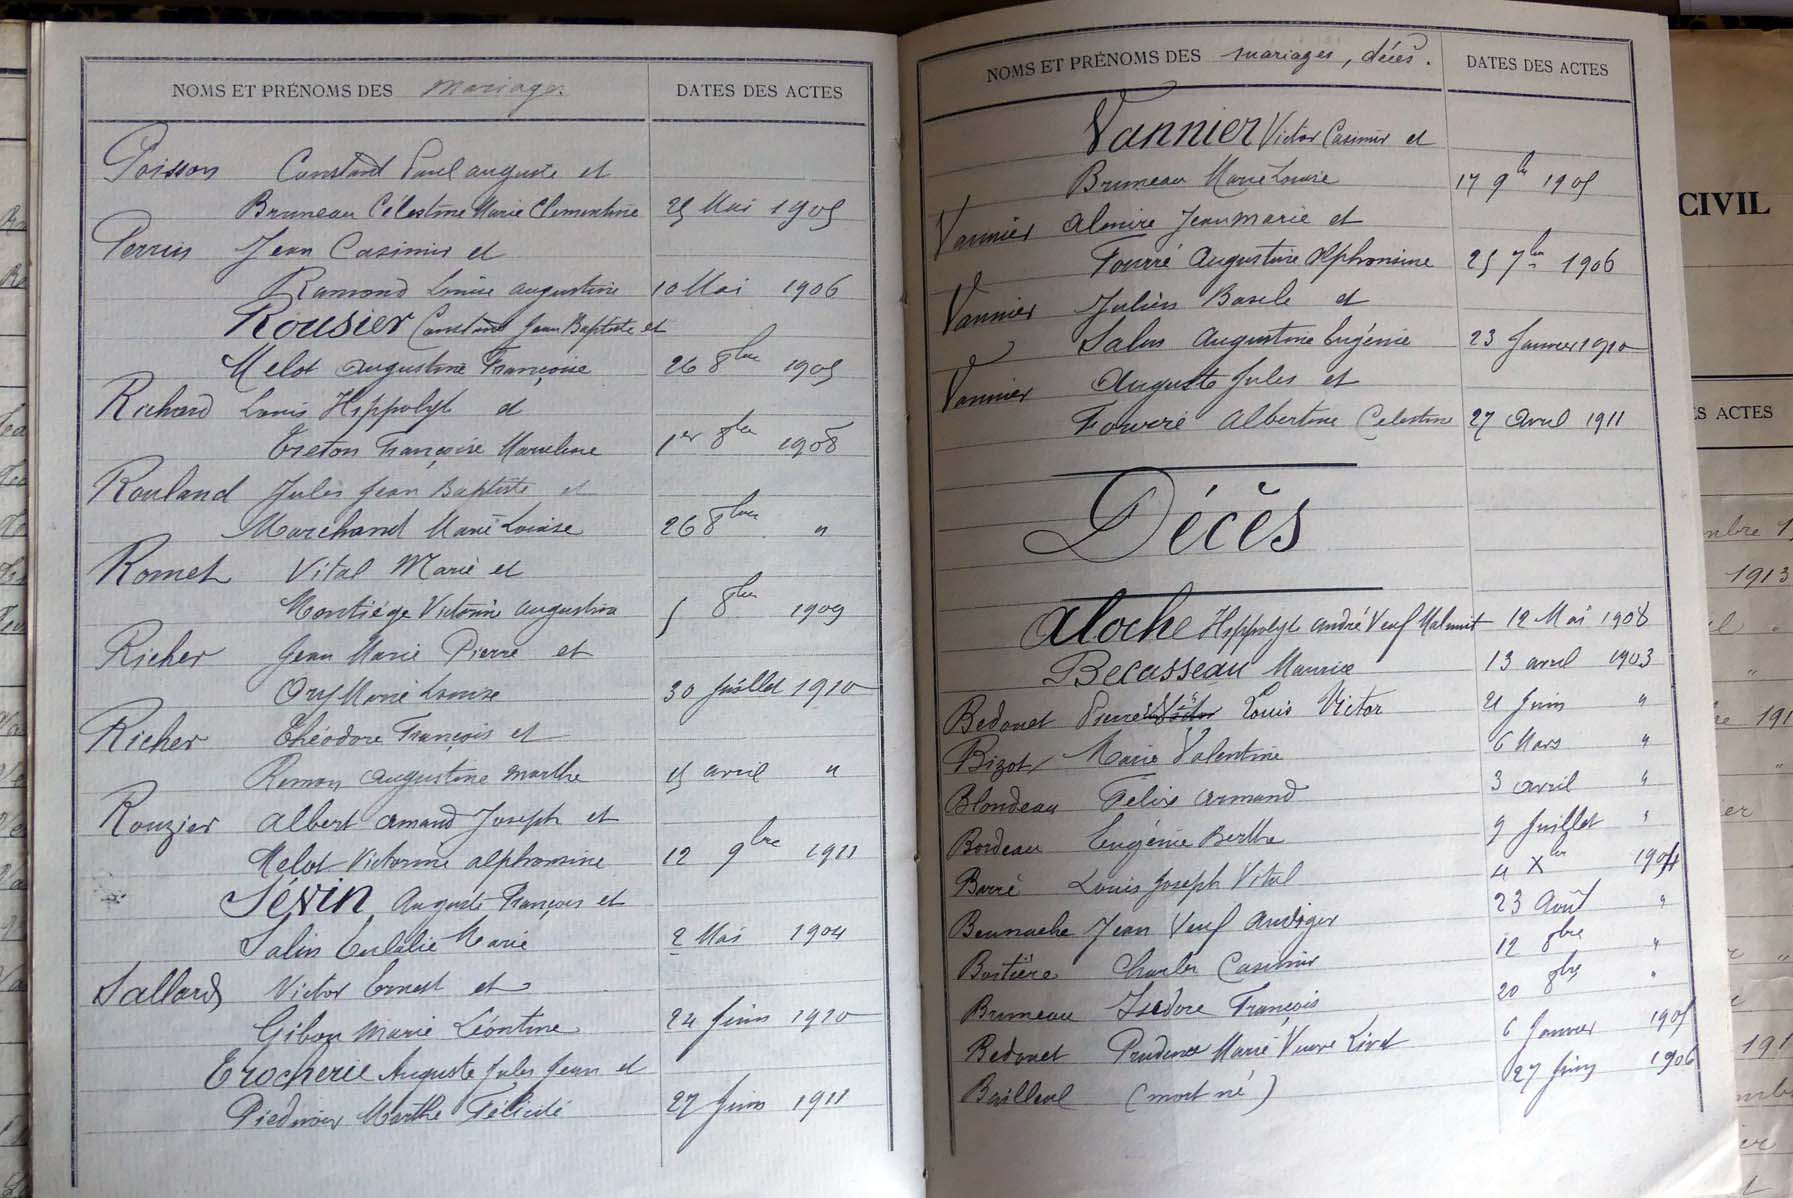 NOMS ET PRÉNOMS DES mariages DATES DES ACTES
Poisson Constant Paul auguste et
Bruneau Célestine Marie Clementine 25 Mai 1905
Perrin Jean Casimir et
Ramond Louise augustine 10 Mai 1906
Rousier Constant Jean Baptiste et
Melot augustine Françoise 26 8bre 1905
Richard Louis Hippolyte et
Treton Françoise 1er 8bre 1908
Rouland Jules Jean Baptiste et
Marchand Marie Louise 26 8bre "
Romet Vital Marie et
Montiége Victorine augustine 5 8bre 1909
Richer Jean Marie Pierre et
Ory Marie Louise 30 Juillet 1910
Richer Théodore François et
augustine marthe 15 avril "
Rouzier albert armand Joseph et
Melot Victorine alphonsine 12 9bre 1911
Sévin Auguste François et
Salin Eulalie Marie 2 Mai 1904
Sallard Victor Ernest et
Gibon Marie Léontine 24 Juin 1910
Trocherie Auguste Jules Jean et
Piednoir Marthe Félicité 27 Juin 1911
NOMS ET PRÉNOMS DES mariages, décès. DATES DES ACTES
Vannier Victor Casimir et
Bruneau Marie Louise 17 9bre 1905
Vannier almire Jean marie et
Fourré Augustine Alphonsine 25 7bre 1906
Vannier Julien Basile et
Augustine Eugénie 23 Janvier 1910
Vannier Auguste Jules et
Fourré Albertine Celestine 27 avril 1911
Décès
Aloche Hippolyte andré Veuf 12 Mai 1908
Becasseau Maurice 13 avril 1903
Bedouet Pierre Louis Victor 21 Juin "
Bizot Marie Valentine 6 Mars "
Blondeau Felix armand 3 avril "
Bordeau Eugénie Berthe 9 Juillet "
Barré Louis Joseph Vital 4 Xbre 1904
Jean Veuf 23 Août "
Bostière Charles Casimir 12 8bre "
Bruneau Isidore François 20 8bre "
Bedouet Prudence Marie Veuve Livet 6 Janvier 1905
Bailleul (mort né) 27 Juin 1906
CIVIL
ES ACTES
mbre 1
1913
191
191